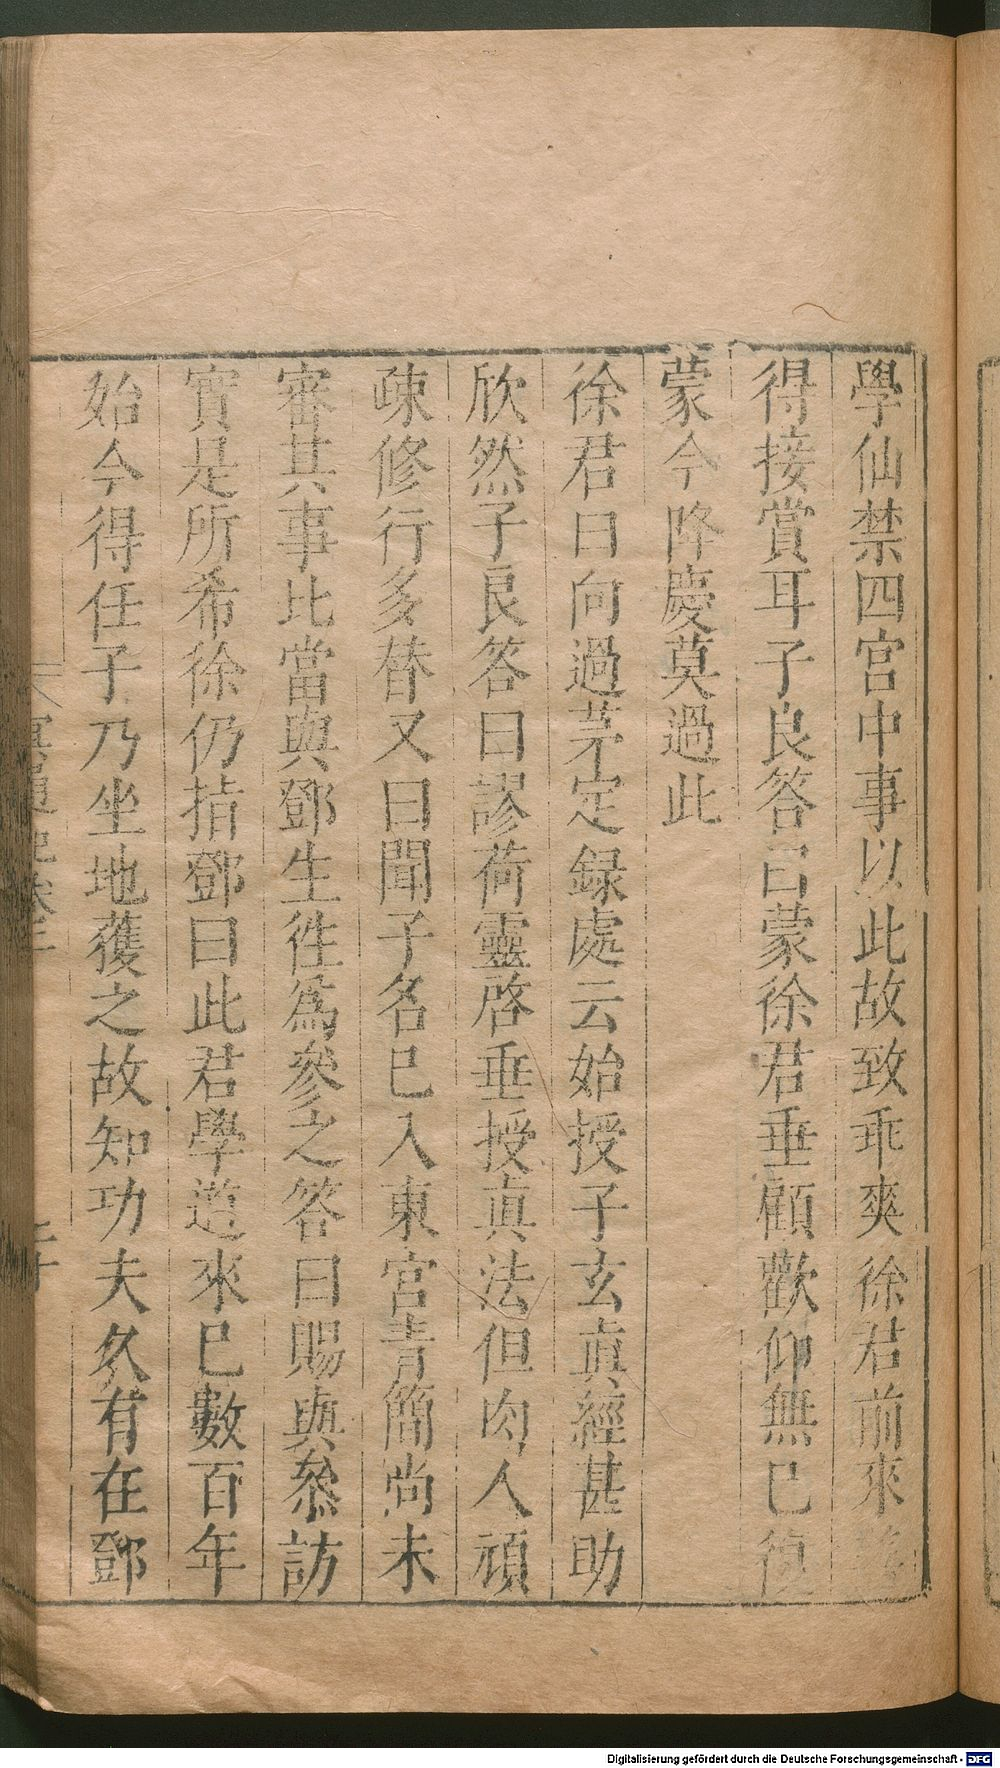 學仙禁四宮中事以此故致乖爽徐君前來
得接賞耳子良答曰蒙徐君垂顧歡仰無已復
蒙今降慶莫過此
徐君曰向過茅定錄處云始授子玄真經甚助
欣然子良答曰謬荷靈啓垂授真法但肉人頑
疎修行多替又曰聞子名已入東宮青簡尚未
審其事比當與鄧生徃爲參之答曰賜與叅訪
實是所希徐仍指鄧曰此君學道來已數百年
始今得任子乃坐地獲之故知功夫久有在鄧
冥通記卷三
Digitalisierung gefördert durch die Deutsche Forschungsgemeinschaft - DFG